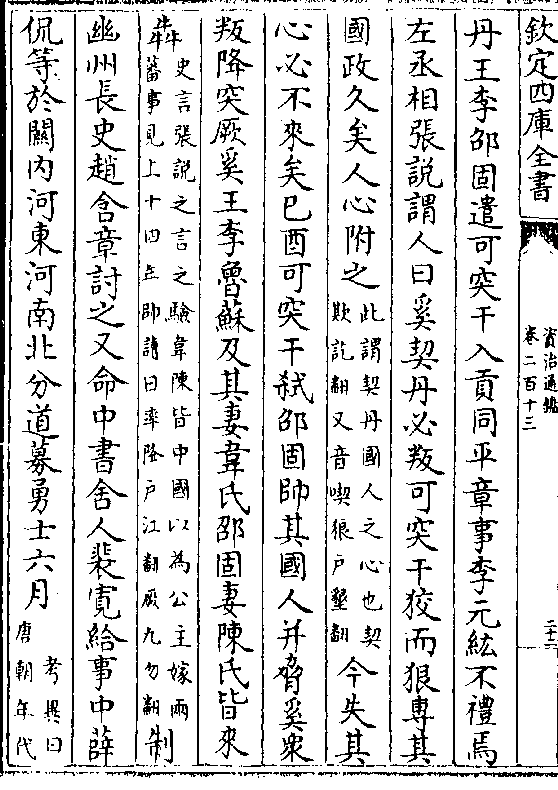 欽定四庫全書
資治通鑑
卷二百十三
二十二
丹王李邵固遣可突干入貢同平章事李元紘不禮焉
左丞相張說謂人曰奚契丹必叛可突干狡而狠專其
國政久矣人心附之此謂契丹國人之心也契欺訖翻又音喫狠戶墾翻今失其
心必不來矣巳酉可突干弑邵固帥其國人并脅奚衆
叛降突厥奚王李魯蘇及其妻韋氏邵固妻陳氏皆來
犇史言張說之言之驗韋陳皆中國以為公主嫁兩蕃事見上十四年帥讀曰率降戶江翻厥九勿翻制
幽州長史趙含章討之又命中書舍人裴寛給事中薛
侃等於關内河東河南北分道募勇士六月考異曰唐朝年代